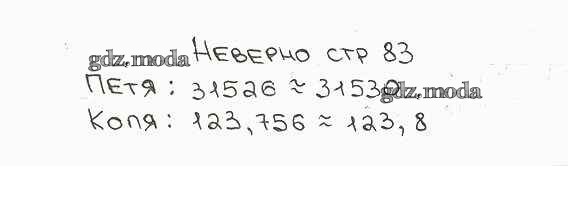 gdz.moda НЕВЕРНО СТР 83
ПЕТЯ : 31526 ≈ 31530 gdz.moda
КОЛЯ : 123,756 ≈ 123, 8